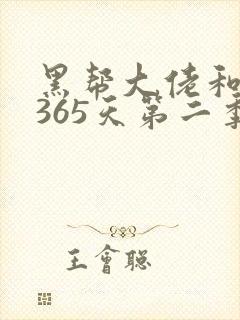 黑帮大佬和
365天第二季
王會聪